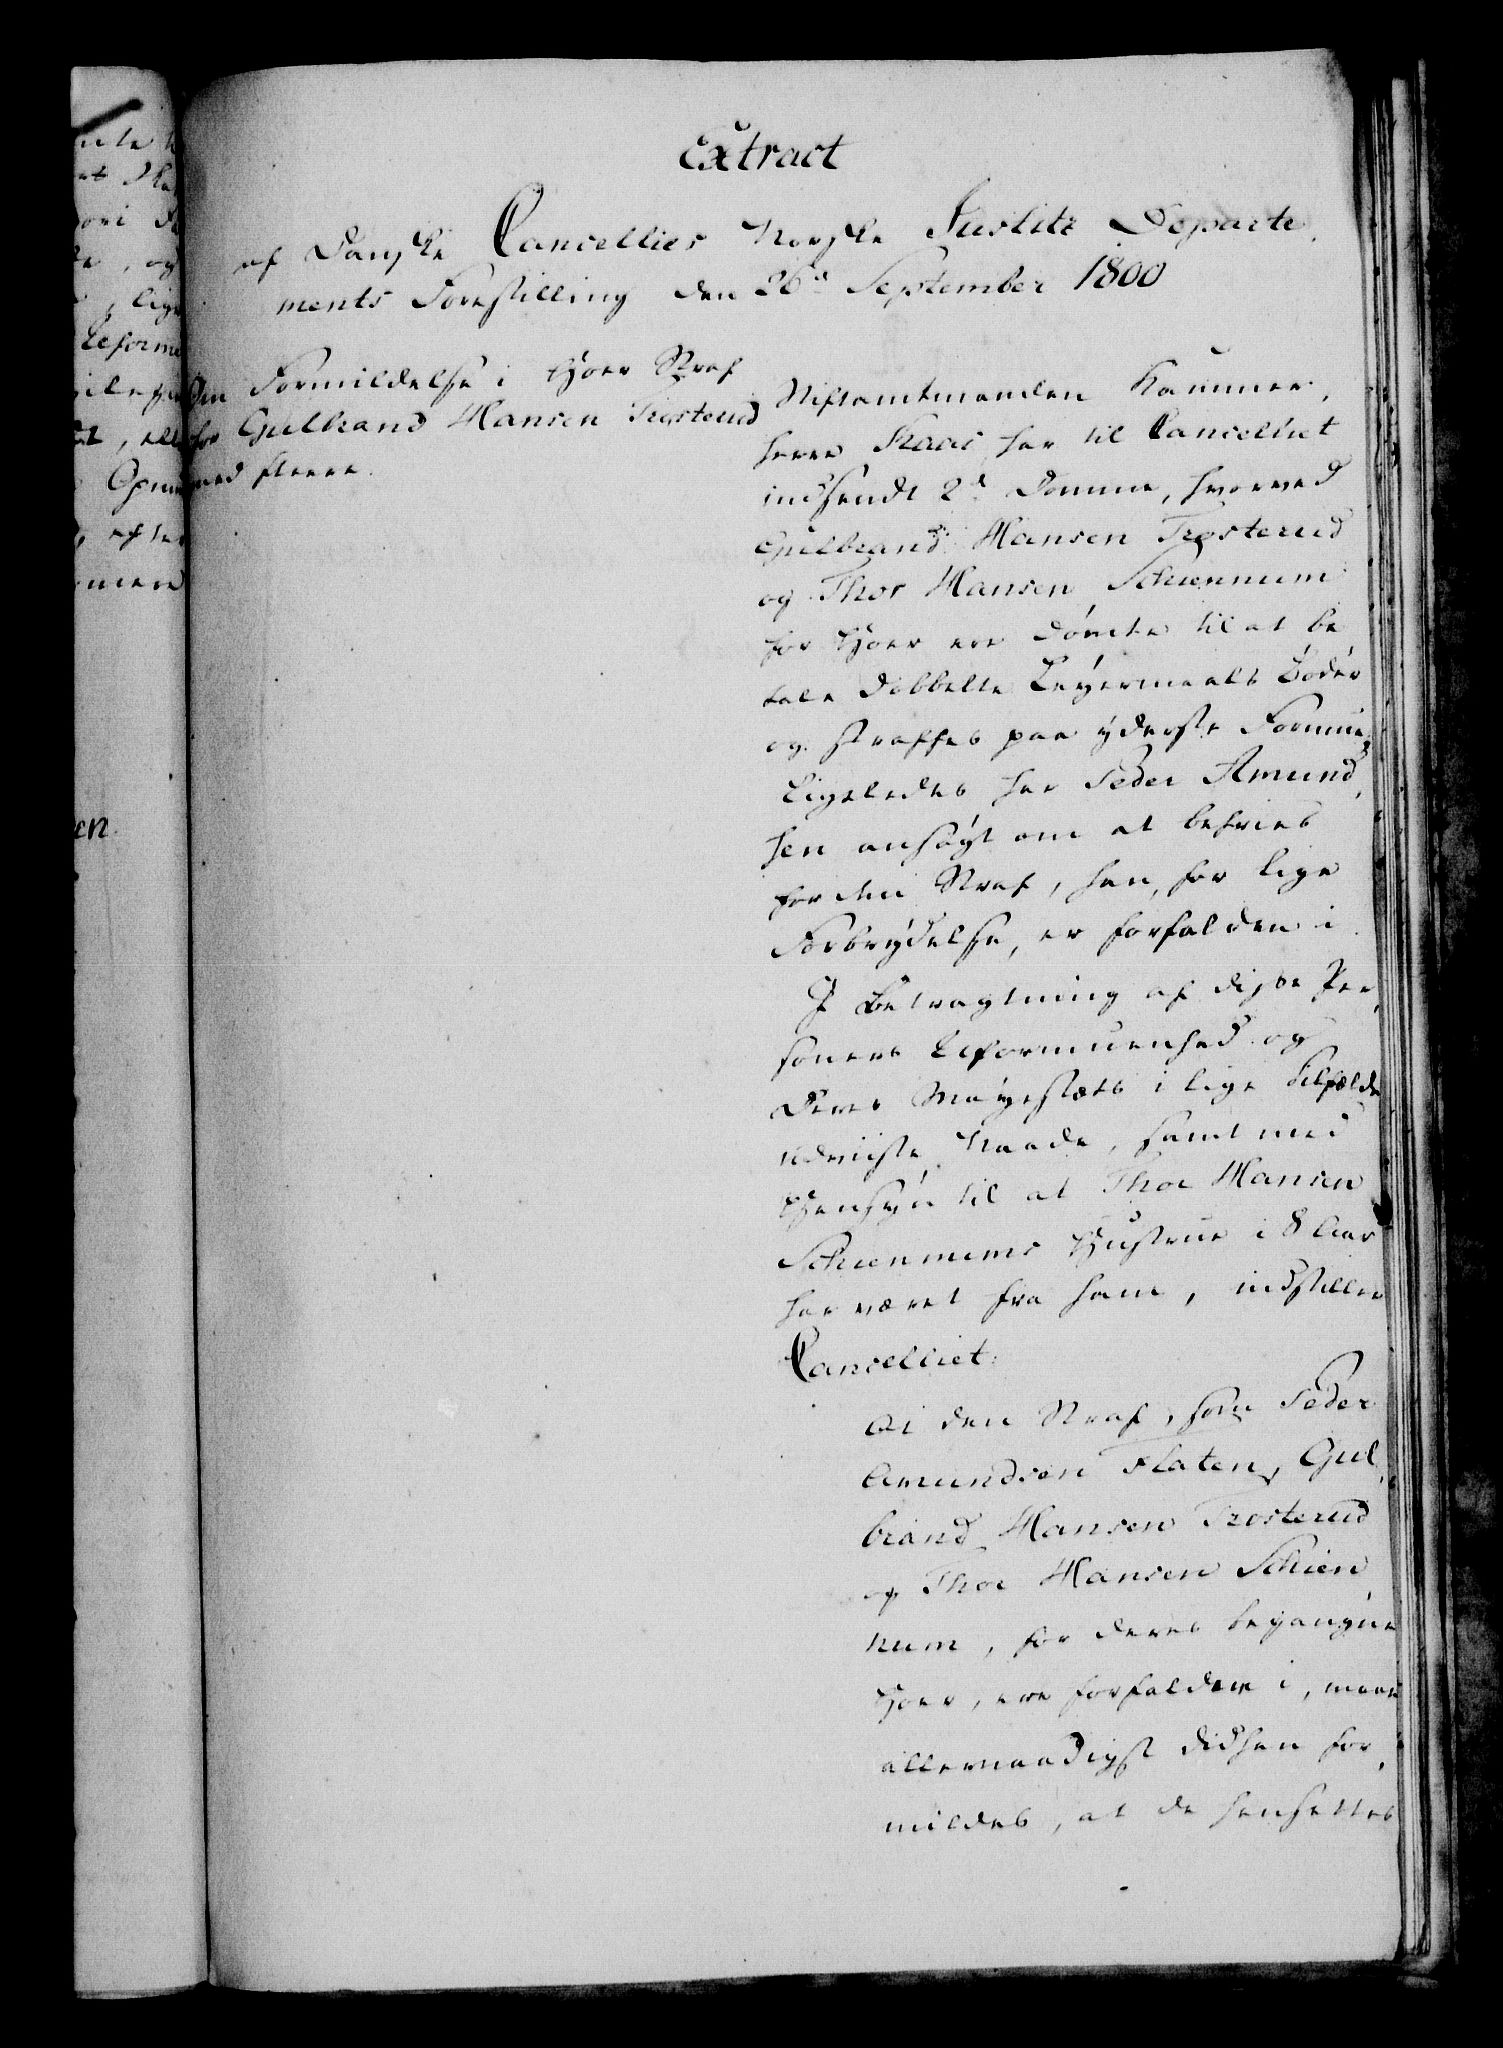 Extract
af Danske Cancellies Norske Justitz Departe
ments Forestilling den 26d September 1800
Om Formildelse i Hoer Straf
for Gulbrand Hansen Trosterud
med fleere.
Stiftamtmanden Kammer,
herre Kaas har til Cancelliet
indsendt 2de Domme, hvorved
Gulbrand Hansen Trosterud
og Thor Hansen Schiennum
for Hoer ere dømte til at be
tale dobbelte Leyermaals Bøder
og straffes paa yderste Formue,
Ligeledes har Peder Amund,
sen ansøgt om at befries
for den Straf, han, for lige
Forbrydelse, er forfalden i.
I Betragtning af disse Per,
soners Uformuenhed og
Deres Mayestæts i lige Tilfælde
udviiste Naade, samt med
Hensyn til at Thor Hansen
Schiennums Hustrue i 8 Aar
har været fra ham, indstiller
Cancelliet:
at den Straf, som Peder
Amundsen Flaten, Gul,
brand Hansen Trosterud
og Thor Hansen Schien,
num, for deres begangne
Hoer, ere forfaldne i, maae
allernaadigst didhen for,
mildes, at de hensettes